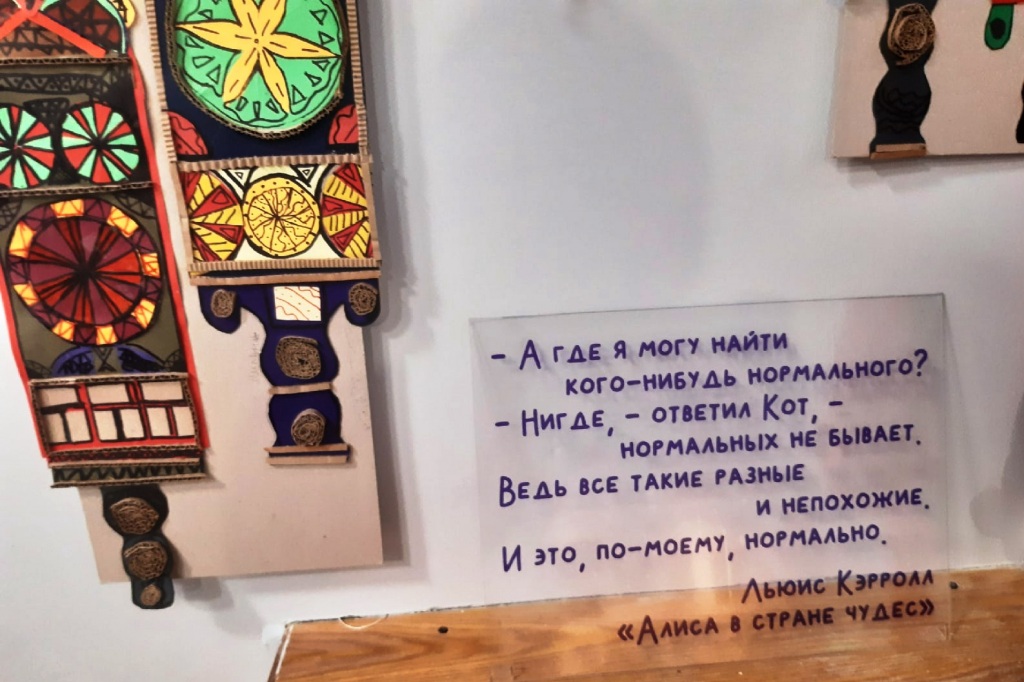 - А ГДЕ Я МОГУ НАЙТИ
КОГО-НИБУДЬ НОРМАЛЬНОГО?
- НИГДЕ, - ОТВЕТИЛ КОТ, -
НОРМАЛЬНЫХ НЕ БЫВАЕТ.
ВЕДЬ ВСЕ ТАКИЕ РАЗНЫЕ
И НЕПОХОЖИЕ.
И ЭТО, ПО-МОЕМУ, НОРМАЛЬНО.
ЛЬЮИС КЭРРОЛЛ
«АЛИСА В СТРАНЕ ЧУДЕС»